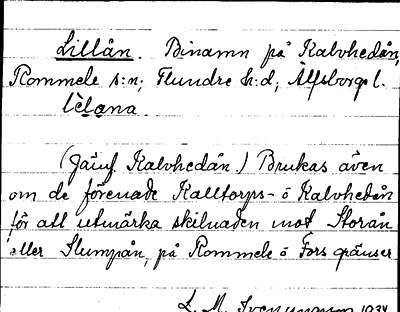 Lillån. Binamn på Kalvhedån,
Rommele s:n; Flundre h:d, Älfsborgs l.
lìlana.
(Jämf. Kalvhedån.) Brukas även
om de förenade Kalltorps- o Kalvhedån
för att utmärka skilnaden mot Storån
eller Slumpån, på Rommele o Fors gränser
L. M. Svenungson 1934